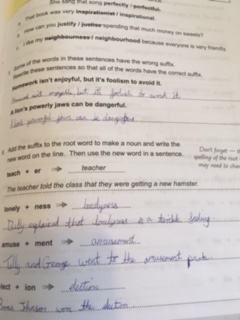 She sang that song perfectly / perfectful.
that book was very inspirationist / inspirational.
How can you justify / justise spending that much money on sweets?
I like my neighbourness / neighbourhood because everyone is very friendly.
Some of the words in these sentences have the wrong suffix.
Rewrite these sentences so that all of the words have the correct suffix.
Homework isn't enjoyful, but it's foolism to avoid it.
A lion's powerly jaws can be dangerful.
powerful jaws can be dangerous
Add the suffix to the root word to make a noun and write the
new word on the line. Then use the new word in a sentence.
Don't forget — the
spelling of the root
may need to change
teach + er ⇒ teacher
The teacher told the class that they were getting a new hamster.
lonely + ness ⇒
explained that is a feeling
amuse + ment ⇒ amusement
and George went to the amusement park
elect + ion ⇒ election
Johnson won the election